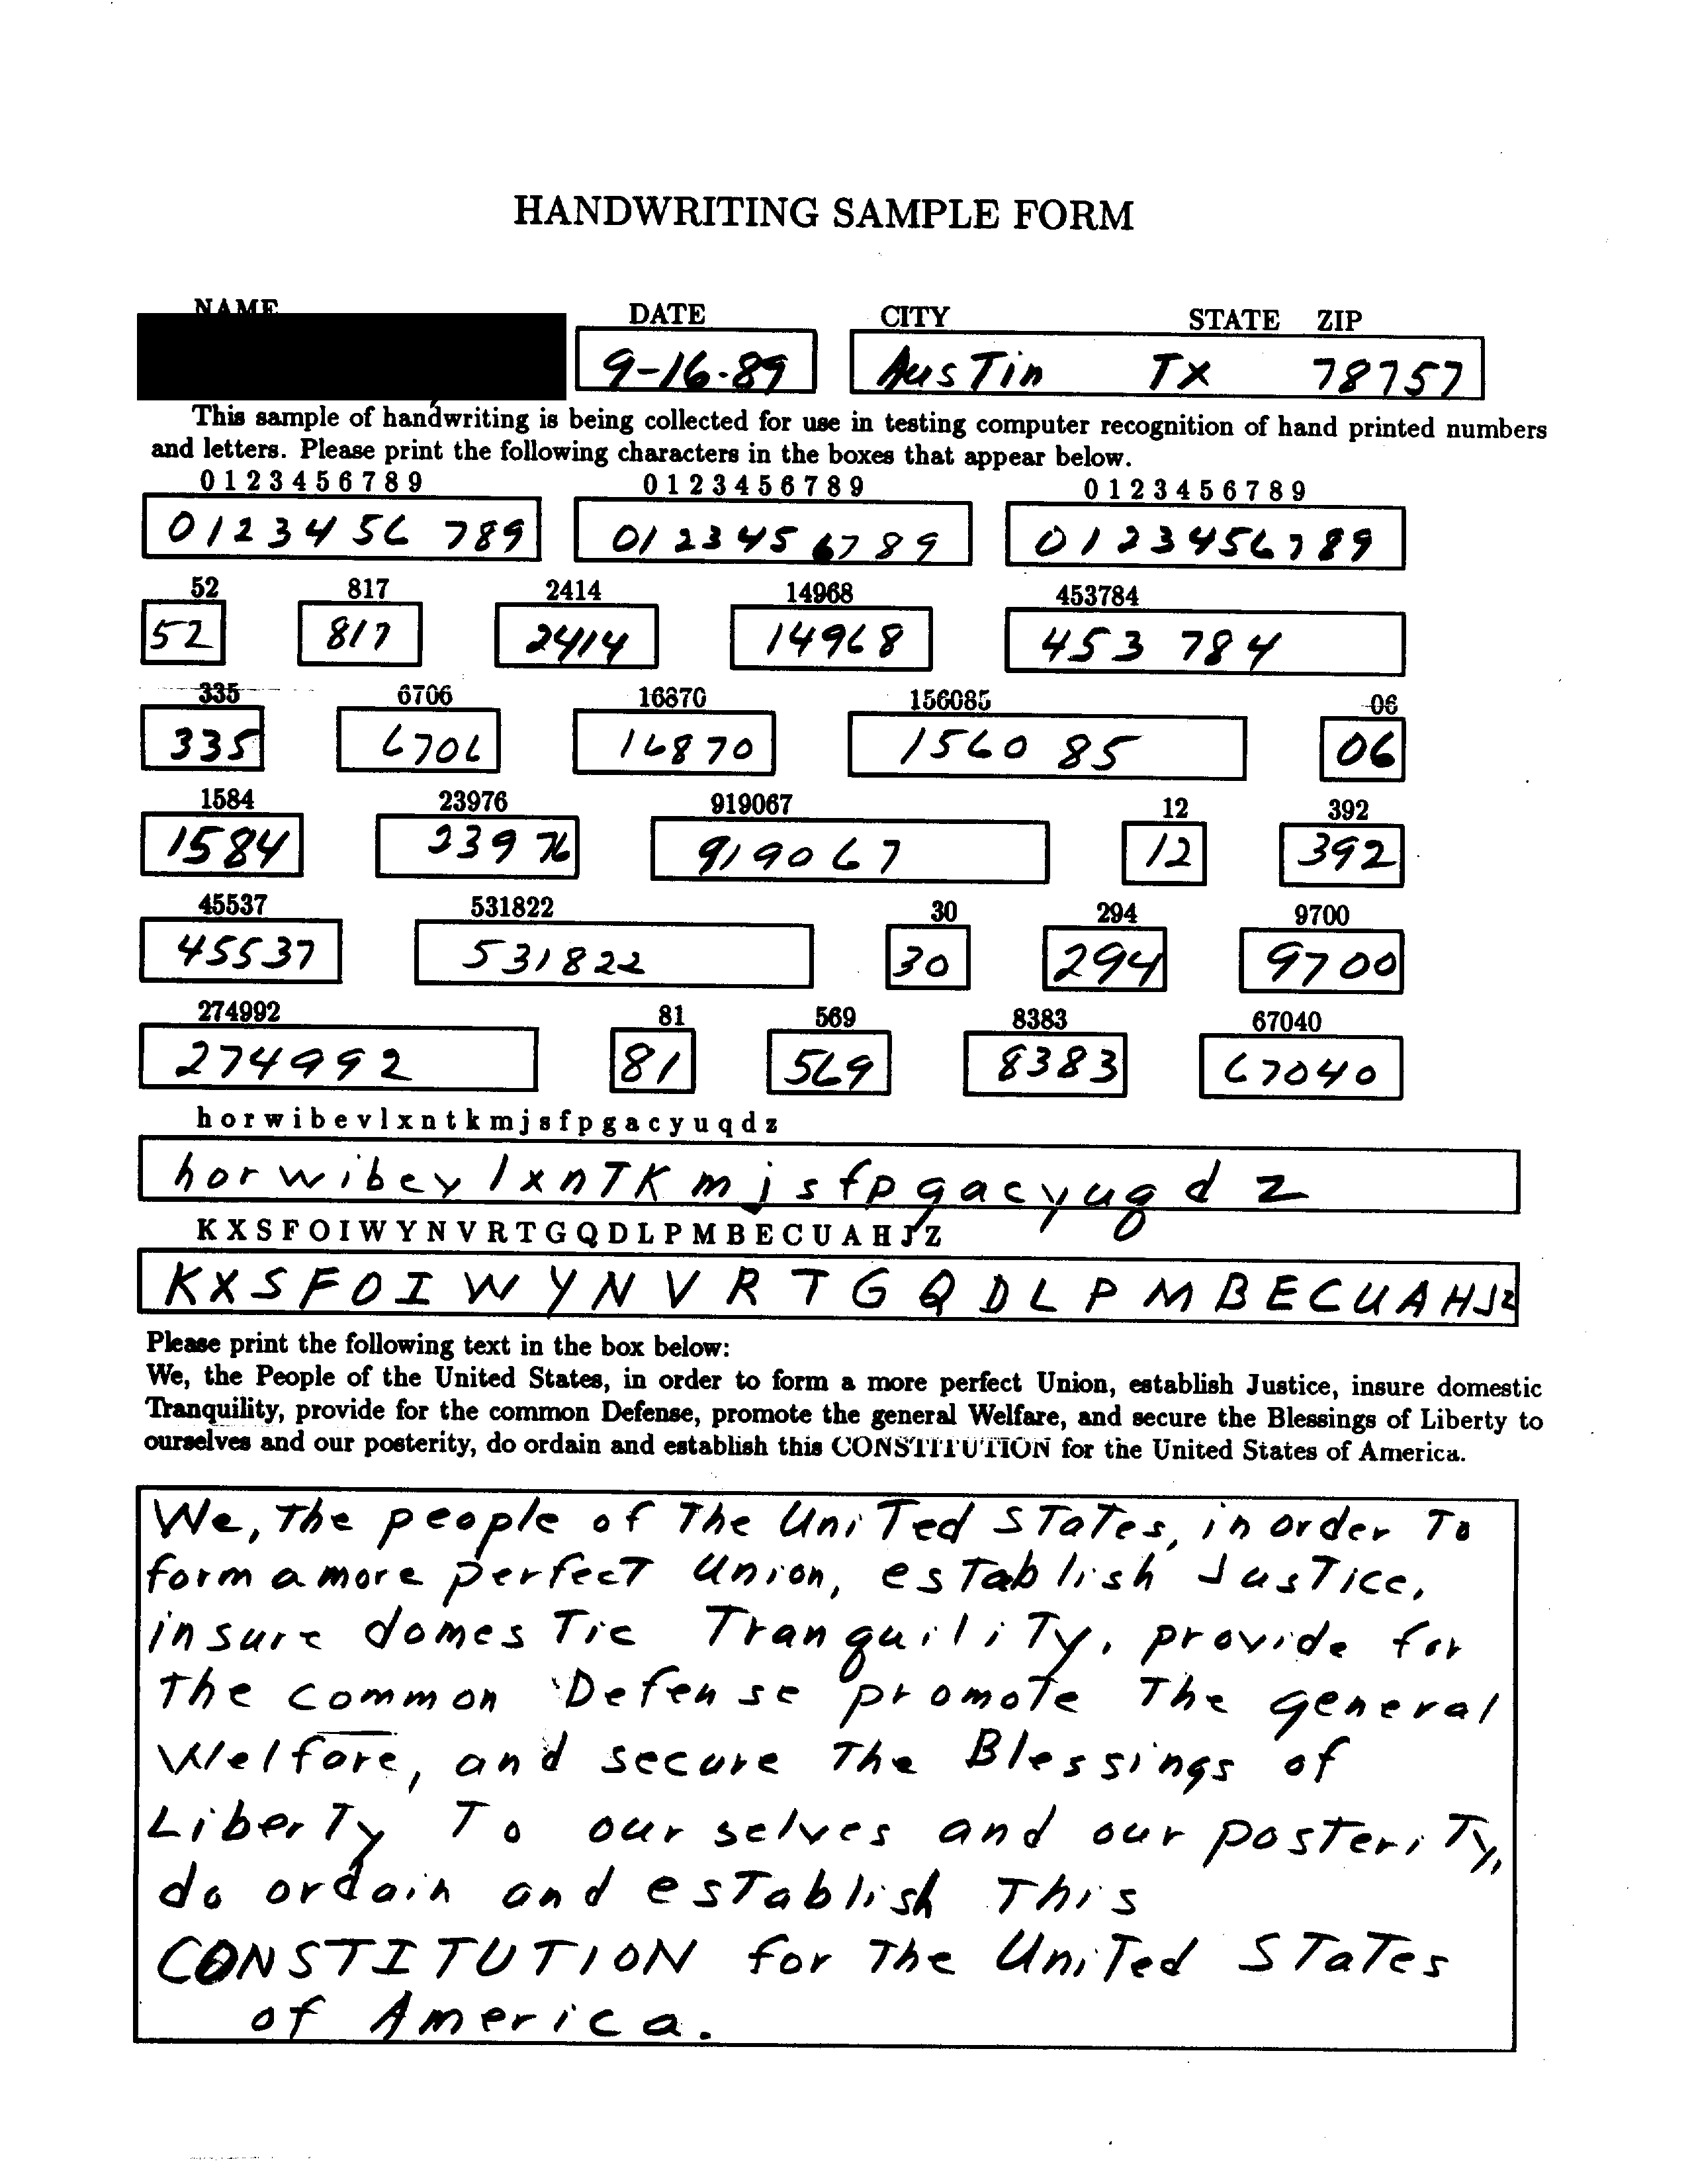 HANDWRITING SAMPLE FORM
NAME DATE CITY STATE ZIP
9-16-89 AusTin TX 78757
This sample of handwriting is being collected for use in testing computer recognition of hand printed numbers
and letters. Please print the following characters in the boxes that appear below.
0 1 2 3 4 5 6 7 8 9 0 1 2 3 4 5 6 7 8 9 0 1 2 3 4 5 6 7 8 9
0123456 789 0123456789 0123456789
52 817 2414 14968 453784
52 817 2414 14968 453 784
335 6706 16870 156085 06
335 6706 16870 1560 85 06
1584 23976 919067 12 392
1584 23976 919067 12 392
45537 531822 30 294 9700
45537 531822 30 294 9700
274992 81 569 8383 67040
274992 81 569 8383 67040
h o r w i b e v l x n t k m j s f p g a c y u q d z
h o r w i b e v l x n T K m j s f p g a c y u q d z
K X S F O I W Y N V R T G Q D L P M B E C U A H J Z
K X S F O I W Y N V R T G Q D L P M B E C U A H J Z
Please print the following text in the box below:
We, the People of the United States, in order to form a more perfect Union, establish Justice, insure domestic
Tranquility, provide for the common Defense, promote the general Welfare, and secure the Blessings of Liberty to
ourselves and our posterity, do ordain and establish this CONSTITUTION for the United States of America.
We, The people of The UniTed STaTes, in order To
form a more perfecT Union, esTablish JusTice,
insure domesTic TranquiliTy, provide for
The common Defense promoTe The general
Welfare, and secure The Blessings of
LiberTy To ourselves and our posTeriTy,
do ordain and esTablish This
CONSTITUTION for The UniTed STaTes
of America.